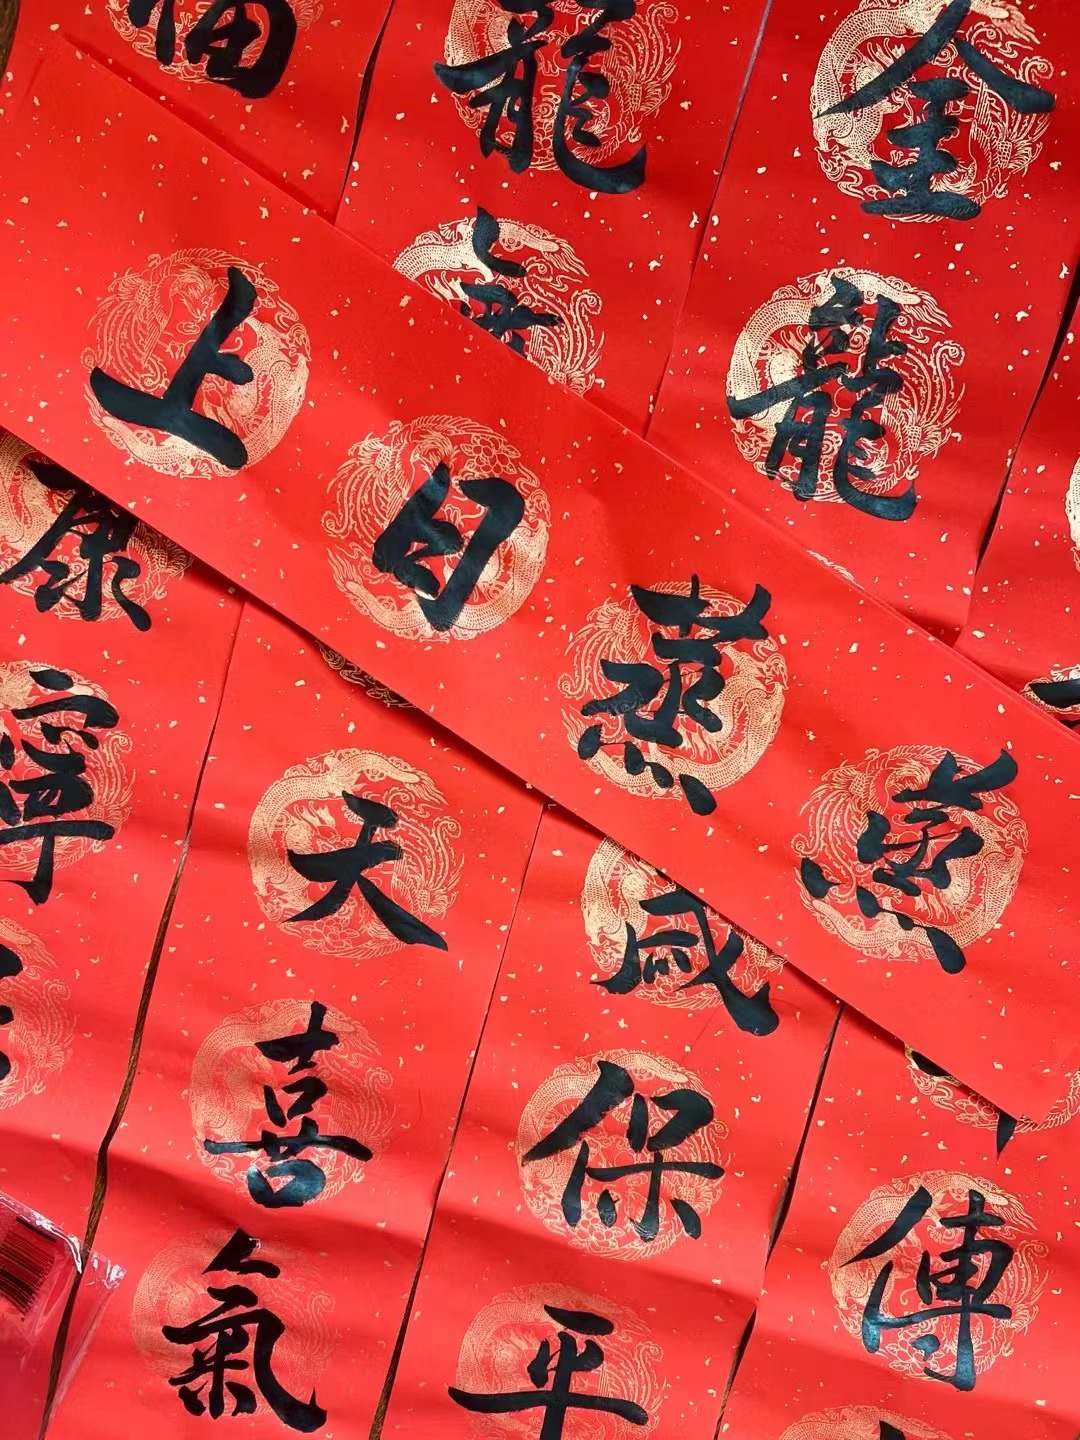 蒸蒸日上
金龍
龍
福
傳
保平
天喜氣
康寧